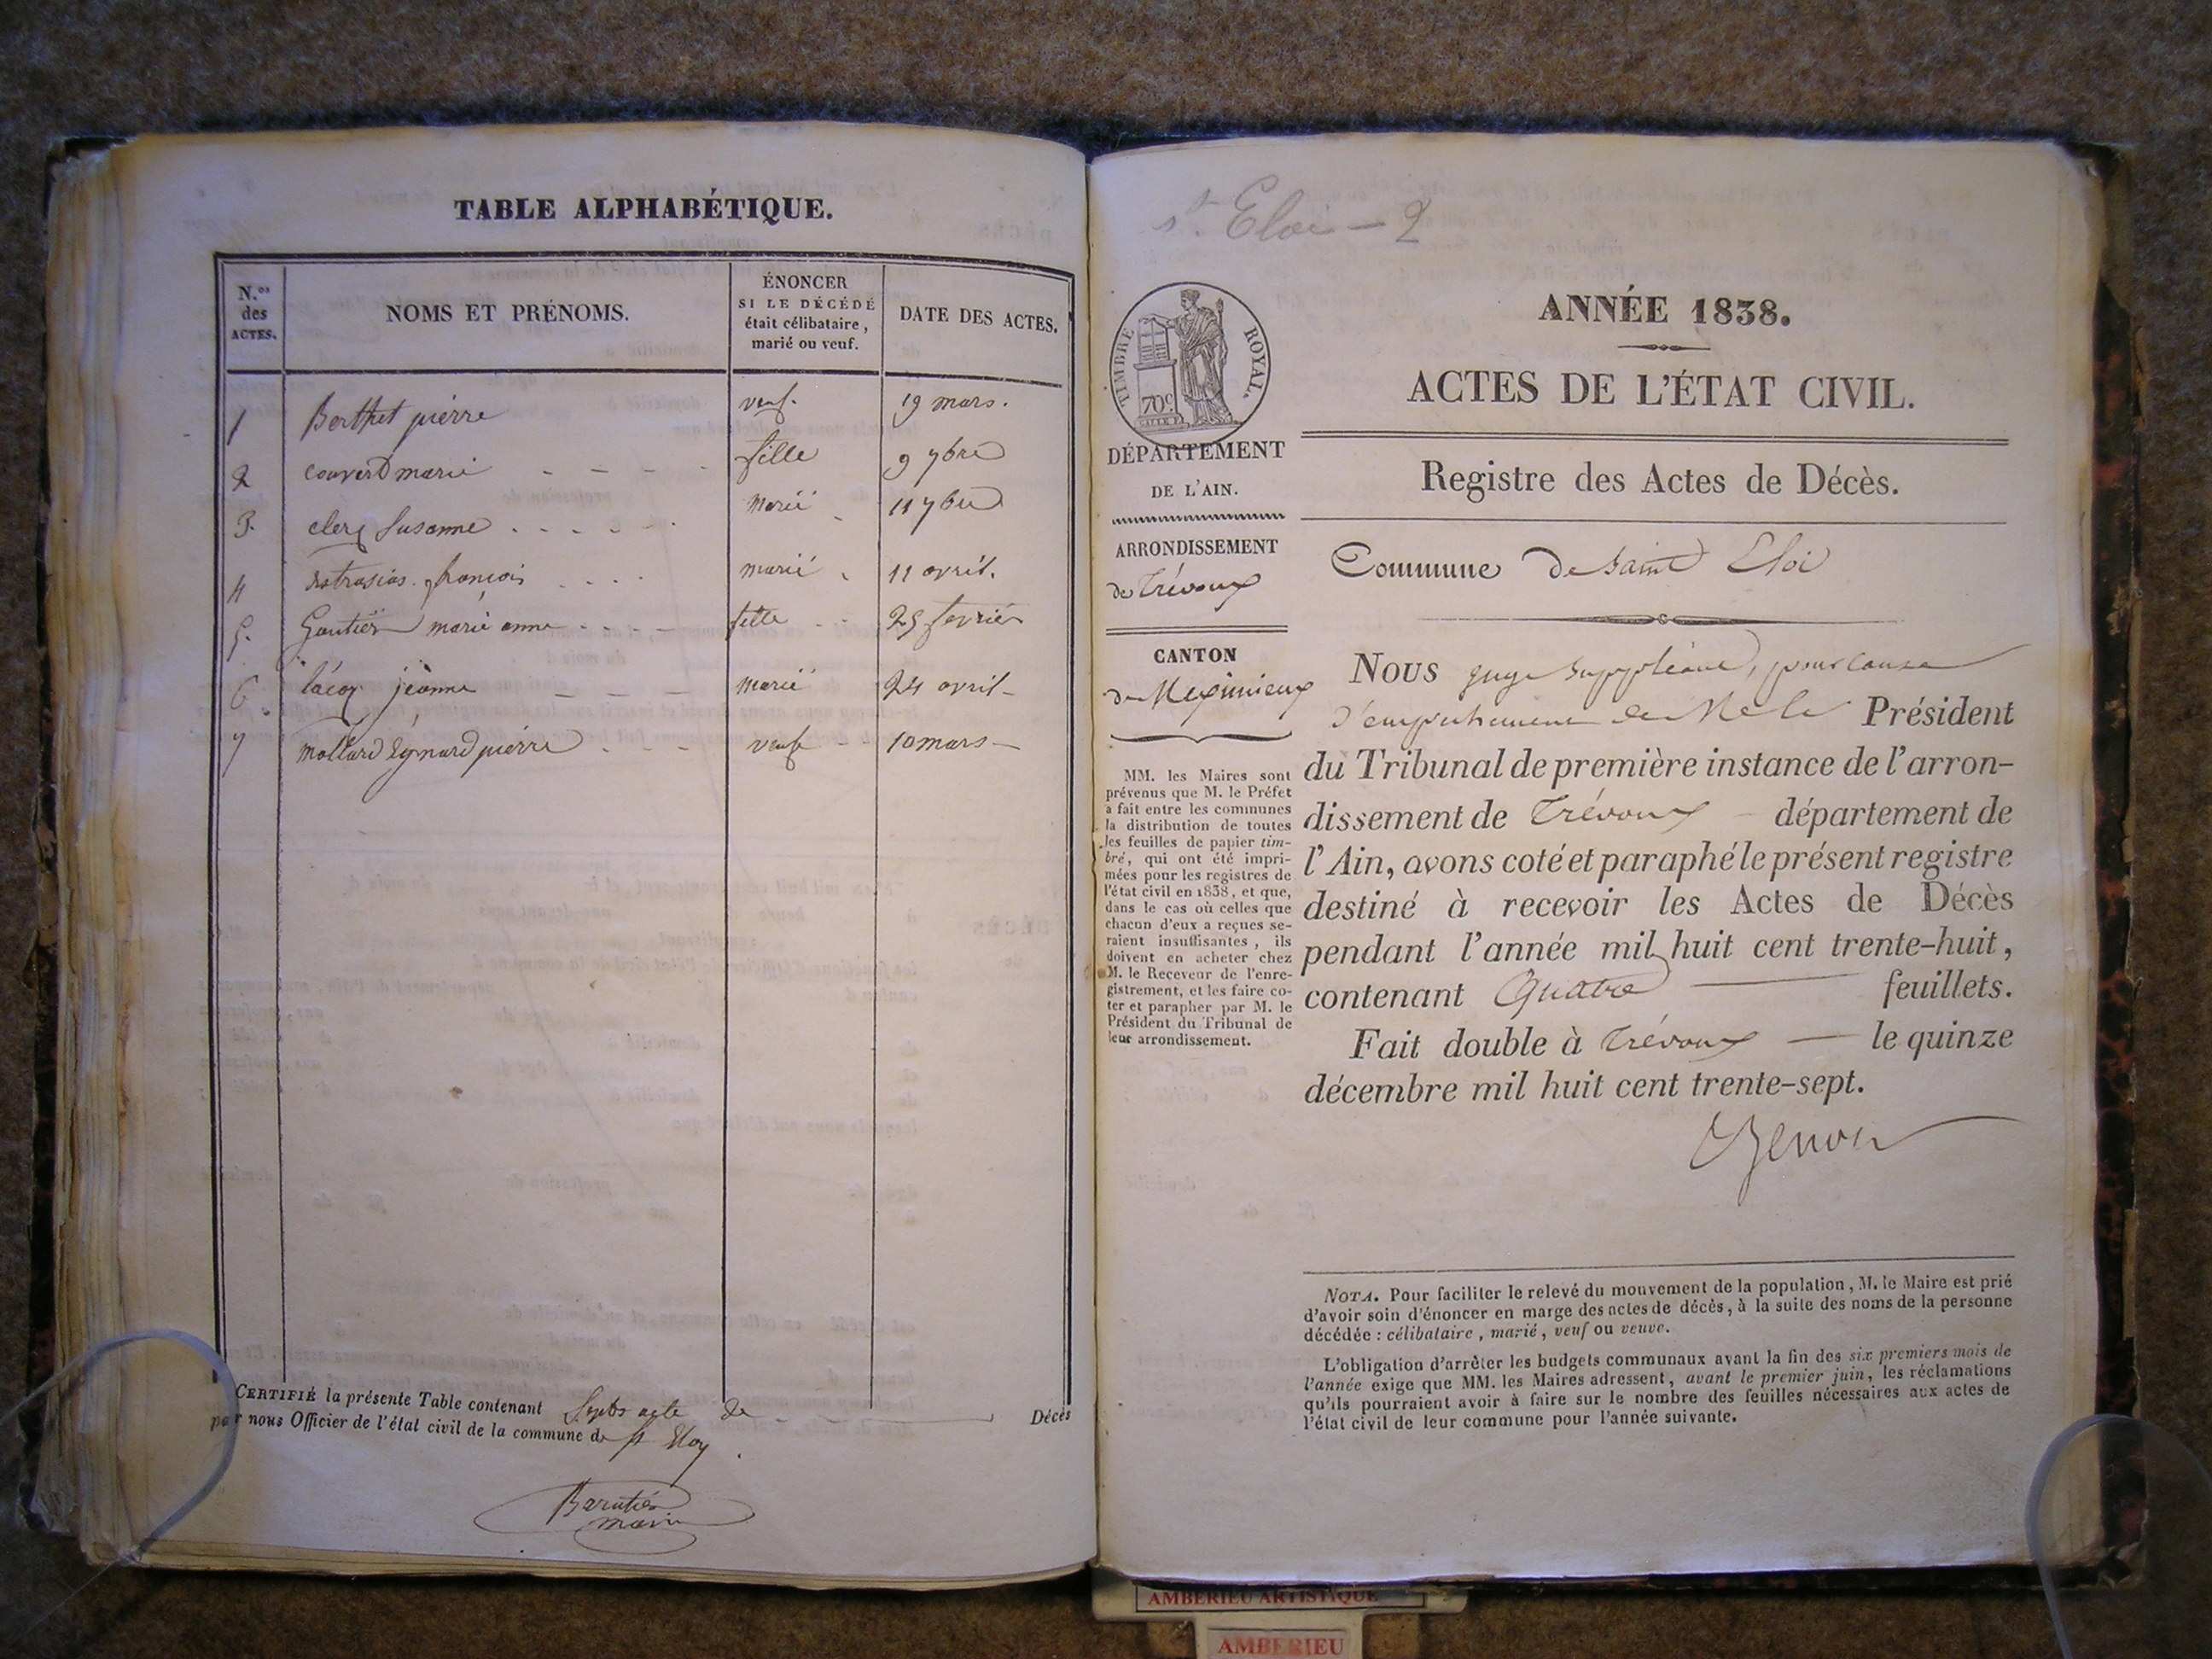 TABLE ALPHABÉTIQUE.
N.os des ACTES.
NOMS ET PRÉNOMS.
ÉNONCER
SI LE DÉCÉDÉ
était célibataire,
marié ou veuf.
DATE DES ACTES.
1 Berthet pierre veuf. 19 mars.
2 couvert marie fille 9 7bre
3. clerc Susanne marié 11 7bre
4 françois marié 11 avril.
5. Gautier marie anne fille 25 fevrier
6. lacoq jeanne marié 24 avril
7 mollard Eynard pierre veuf 10 mars
CERTIFIÉ la présente Table contenant Septs acte de Décès
par nous Officier de l'état civil de la commune de st Eloy.
Barutier
maire
st. Eloi - 2
TIMBRE ROYAL.
70c.
DÉPARTEMENT
DE L'AIN.
ARRONDISSEMENT
de Trévoux
CANTON
de Meximieux
MM. les Maires sont
prévenus que M. le Préfet
a fait entre les communes
la distribution de toutes
les feuilles de papier tim-
bré, qui ont été impri-
mées pour les registres de
l'état civil en 1838, et que,
dans le cas où celles que
chacun d'eux a reçues se-
raient insuffisantes, ils
doivent en acheter chez
M. le Receveur de l'enre-
gistrement, et les faire co-
ter et parapher par M. le
Président du Tribunal de
leur arrondissement.
ANNÉE 1838.
ACTES DE L'ÉTAT CIVIL.
Registre des Actes de Décès.
Commune de Saint Eloi
Nous juge suppléant, pour cause
d'empêchement de Mr le Président
du Tribunal de première instance de l'arron-
dissement de Trévoux département de
l'Ain, avons coté et paraphé le présent registre
destiné à recevoir les Actes de Décès
pendant l'année mil huit cent trente-huit,
contenant Quatre feuillets.
Fait double à Trévoux le quinze
décembre mil huit cent trente-sept.
NOTA. Pour faciliter le relevé du mouvement de la population, M. le Maire est prié
d'avoir soin d'énoncer en marge des actes de décès, à la suite des noms de la personne
décédée : célibataire, marié, veuf ou veuve.
L'obligation d'arrêter les budgets communaux avant la fin des six premiers mois de
l'année exige que MM. les Maires adressent, avant le premier juin, les réclamations
qu'ils pourraient avoir à faire sur le nombre des feuilles nécessaires aux actes de
l'état civil de leur commune pour l'année suivante.
AMBERIEU ARTISTIQUE
AMBERIEU